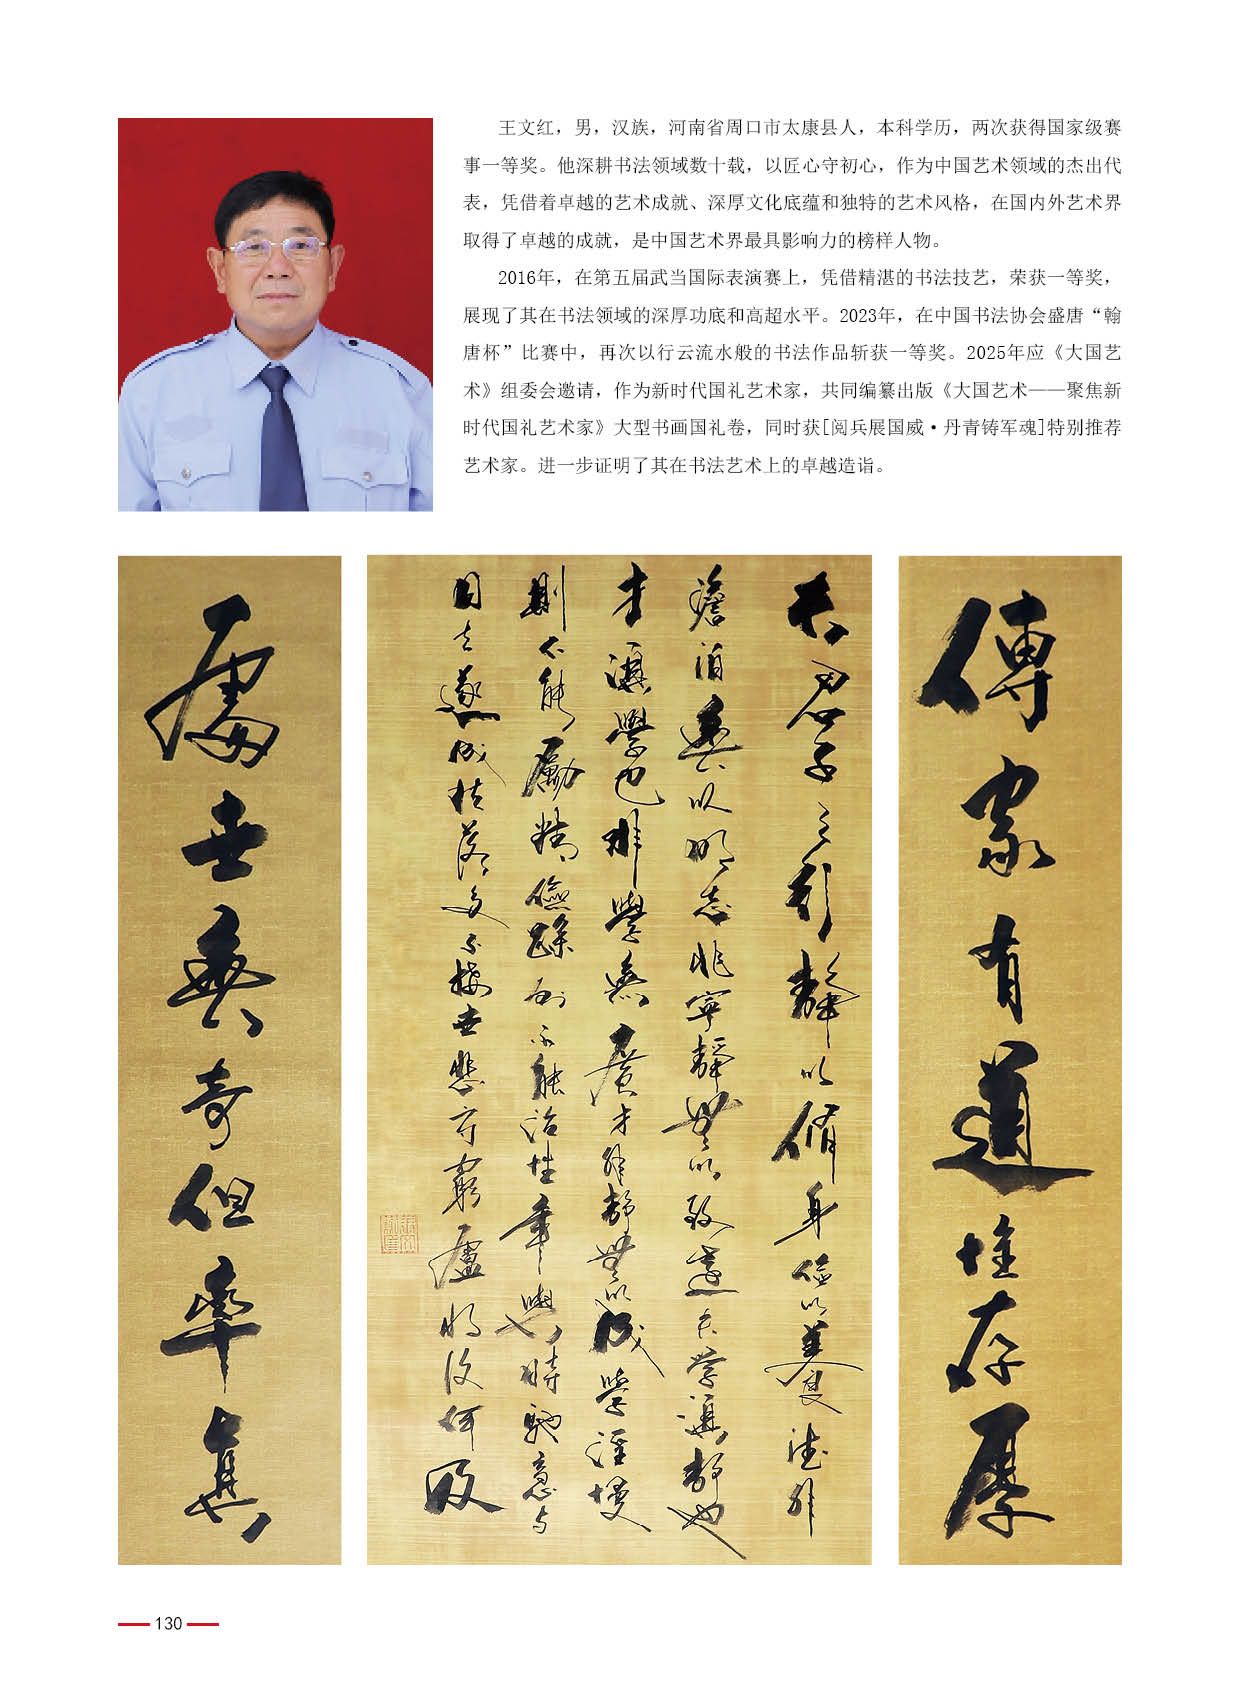 王文红，男，汉族，河南省周口市太康县人，本科学历，两次获得国家级赛
事一等奖。他深耕书法领域数十载，以匠心守初心，作为中国艺术领域的杰出代
表，凭借着卓越的艺术成就、深厚文化底蕴和独特的艺术风格，在国内外艺术界
取得了卓越的成就，是中国艺术界最具影响力的榜样人物。
2016年，在第五届武当国际表演赛上，凭借精湛的书法技艺，荣获一等奖，
展现了其在书法领域的深厚功底和高超水平。2023年，在中国书法协会盛唐“翰
唐杯”比赛中，再次以行云流水般的书法作品斩获一等奖。2025年应《大国艺
术》组委会邀请，作为新时代国礼艺术家，共同编纂出版《大国艺术——聚焦新
时代国礼艺术家》大型书画国礼卷，同时获[阅兵展国威·丹青铸军魂]特别推荐
艺术家。进一步证明了其在书法艺术上的卓越造诣。
傳家有道惟存厚
夫君子之行靜以脩身儉以養德非
澹泊無以明志非寧靜無以致遠夫學須靜也
才須學也非學無廣才非靜無以成學淫慢
則不能勵精險躁則不能治性年與時馳意与
日去遂成枯落多不接世悲守窮廬將復何及
處世無奇但率真
130